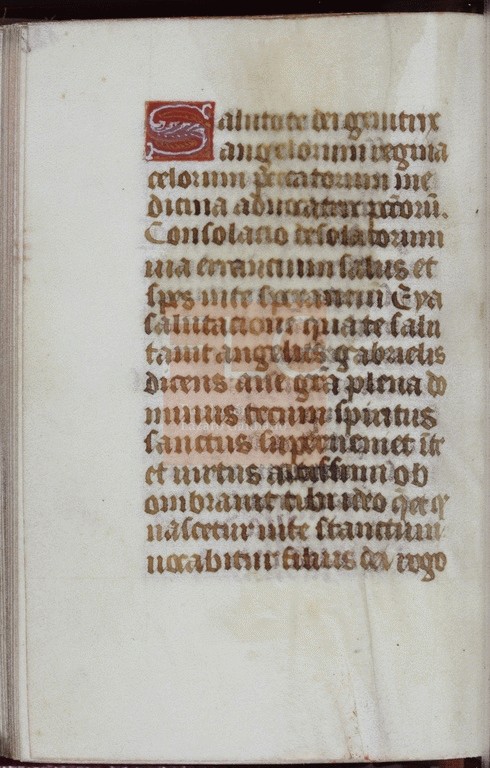 Saluto te dei genitrix
angelorum regina
celorum pccatorum me
dicina aduocatrix pctorū.
Consolacio desolatorum
uia errancium salus et
spes in te sperantiū Eya
salutacione qua te salu
tauit angelus gabrielis
dicens aue gr̄a plena do
minus tecum spiritus
sanctus superueniet īte
et uirtus altissimi ob
ombrauit tibi ideo
nascetur in te stanctum
uocabitur filius dei rogo